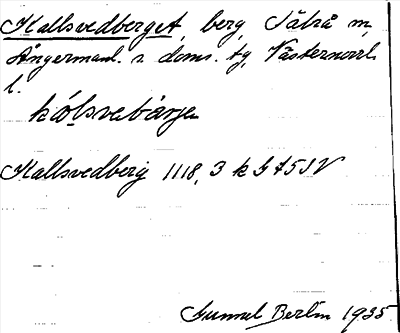 Kallsvedberget, berg, Säbrå sn,
Ångermanl. s. doms. tg, Västernorrl.
l.
Kallsvedberg 1118,3 k G A5 SV
Gunnel Berlin 1935